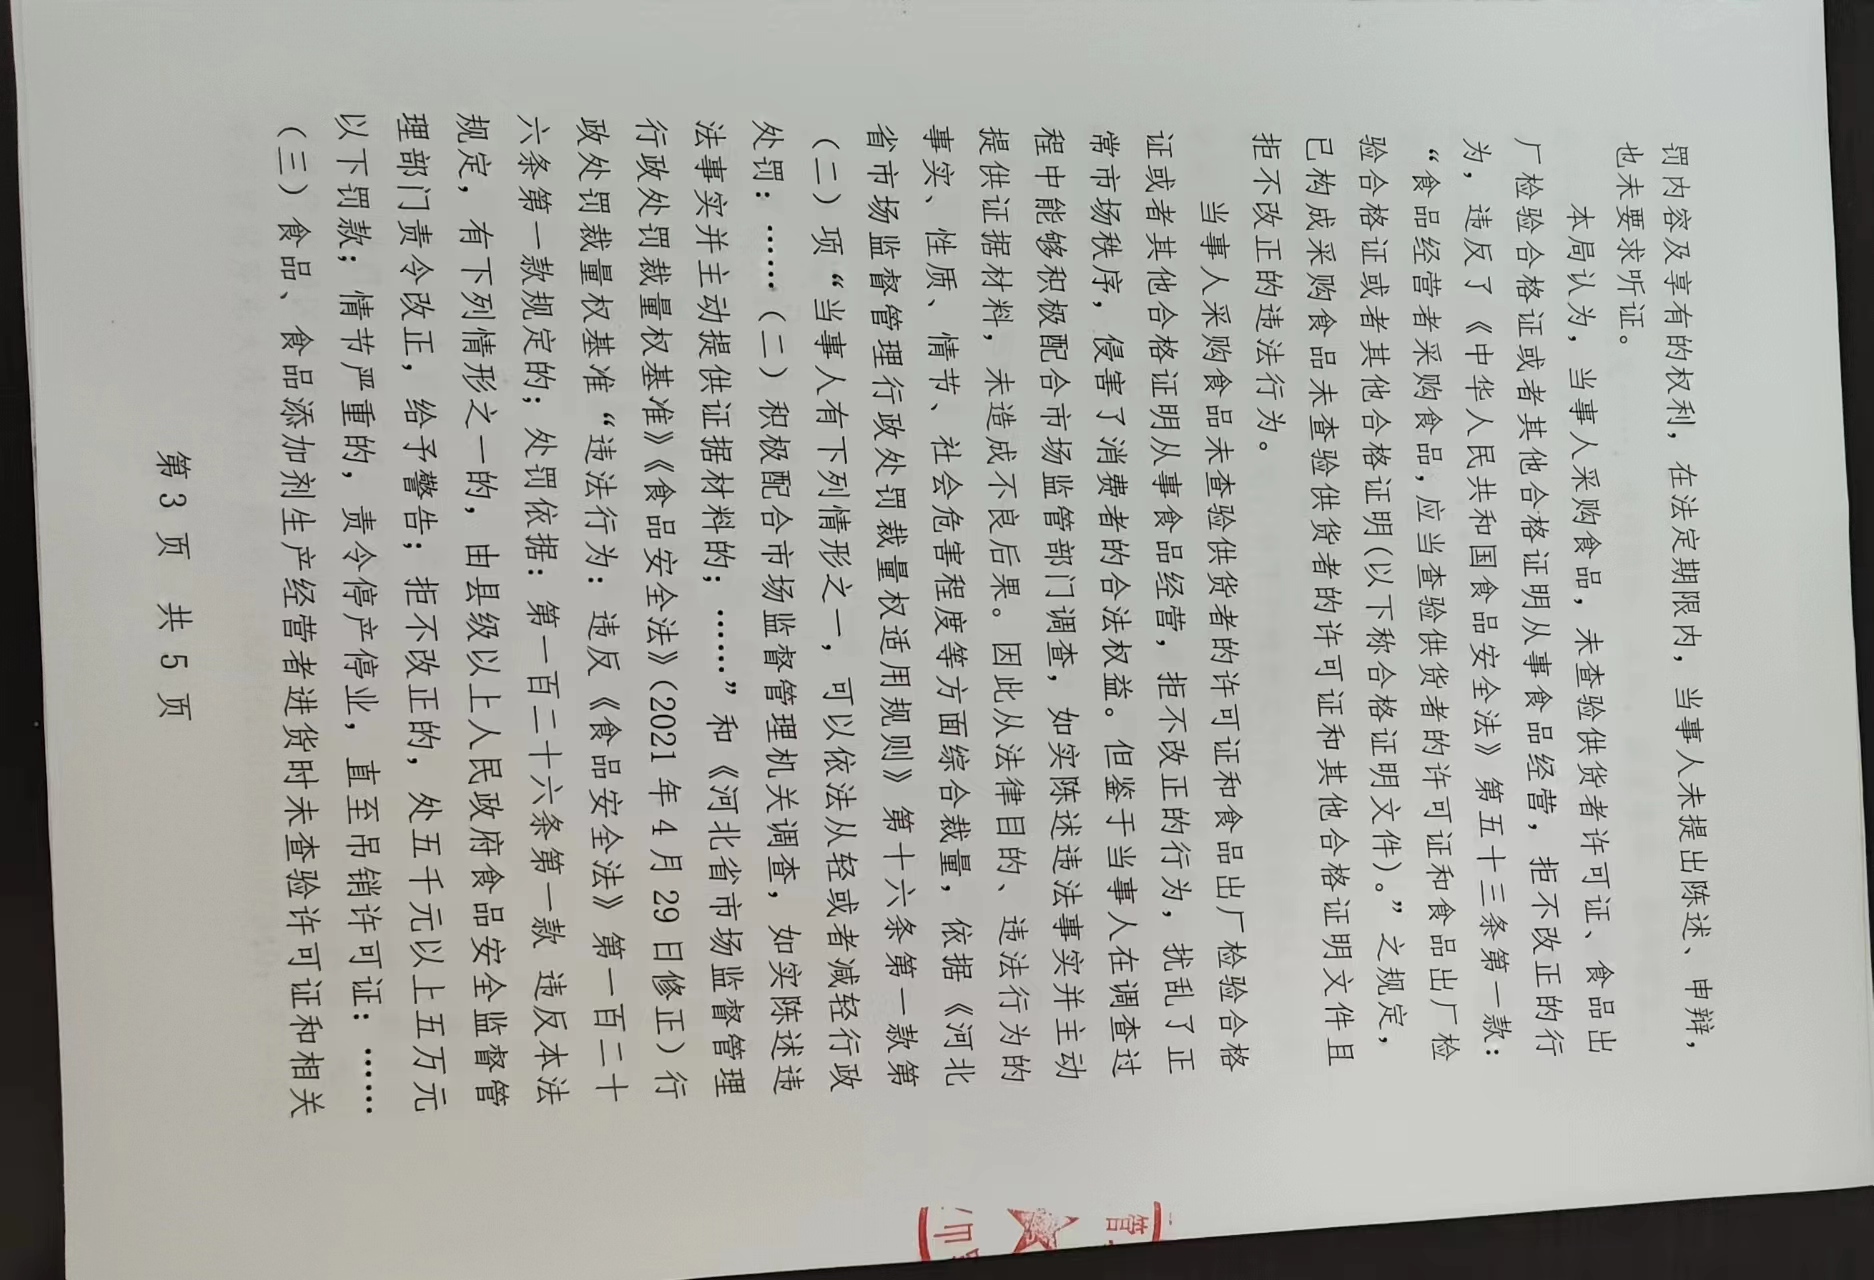 罚内容及享有的权利，在法定期限内，当事人未提出陈述、申辩，
也未要求听证。
本局认为，当事人采购食品，未查验供货者许可证、食品出
厂检验合格证或者其他合格证明从事食品经营，拒不改正的行
为，违反了《中华人民共和国食品安全法》第五十三条第一款：
“食品经营者采购食品，应当查验供货者的许可证和食品出厂检
验合格证或者其他合格证明(以下称合格证明文件)。”之规定，
已构成采购食品未查验供货者的许可证和其他合格证明文件且
拒不改正的违法行为。
当事人采购食品未查验供货者的许可证和食品出厂检验合格
证或者其他合格证明从事食品经营，拒不改正的行为，扰乱了正
常市场秩序，侵害了消费者的合法权益。但鉴于当事人在调查过
程中能够积极配合市场监管部门调查，如实陈述违法事实并主动
提供证据材料，未造成不良后果。因此从法律目的、违法行为的
事实、性质、情节、社会危害程度等方面综合裁量，依据《河北
省市场监督管理行政处罚裁量权适用规则》第十六条第一款第
（二）项“当事人有下列情形之一，可以依法从轻或者减轻行政
处罚：……（二）积极配合市场监督管理机关调查，如实陈述违
法事实并主动提供证据材料的；……”和《河北省市场监督管理
行政处罚裁量权基准》《食品安全法》（2021年4月29日修正）行
政处罚裁量权基准“违法行为：违反《食品安全法》第一百二十
六条第一款规定的；处罚依据：第一百二十六条第一款 违反本法
规定，有下列情形之一的，由县级以上人民政府食品安全监督管
理部门责令改正，给予警告；拒不改正的，处五千元以上五万元
以下罚款；情节严重的，责令停产停业，直至吊销许可证：……
（三）食品、食品添加剂生产经营者进货时未查验许可证和相关
第 3 页 共 5 页
管